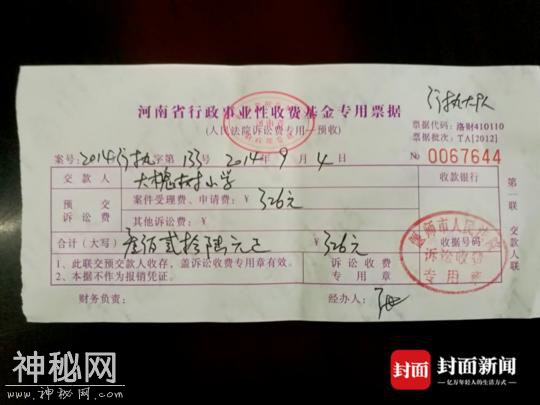 行执大队
河南省行政事业性收费基金专用票据
(人民法院诉讼费专用—预收)
票据代码:洛财410110
票据批次:TA[2012]
案号:2014行执字第133号 2014年9月4日
№ 0067644
交款人 大槐树小学 收款银行
预交诉讼费 案件受理费、申请费:¥326元
其他诉讼费:¥
合计(大写) 叁佰贰拾陆元正 ¥326元 收据号码
1、此联交预交款人收存,盖诉讼收费专用章有效。
2、本据不作为报销凭证。
诉讼收费专用章
第一联 交款人联
偃师市人民法院
诉讼收费
专用章
财务负责: 经办人:
神秘网
-www.神秘网.com-
封面 封面新闻
亿万年轻人的生活方式